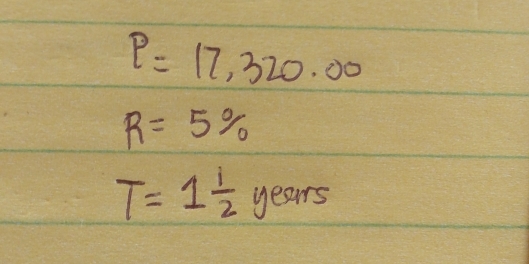 P= 17,320.00
R= 5%
T= 1 1/2 years